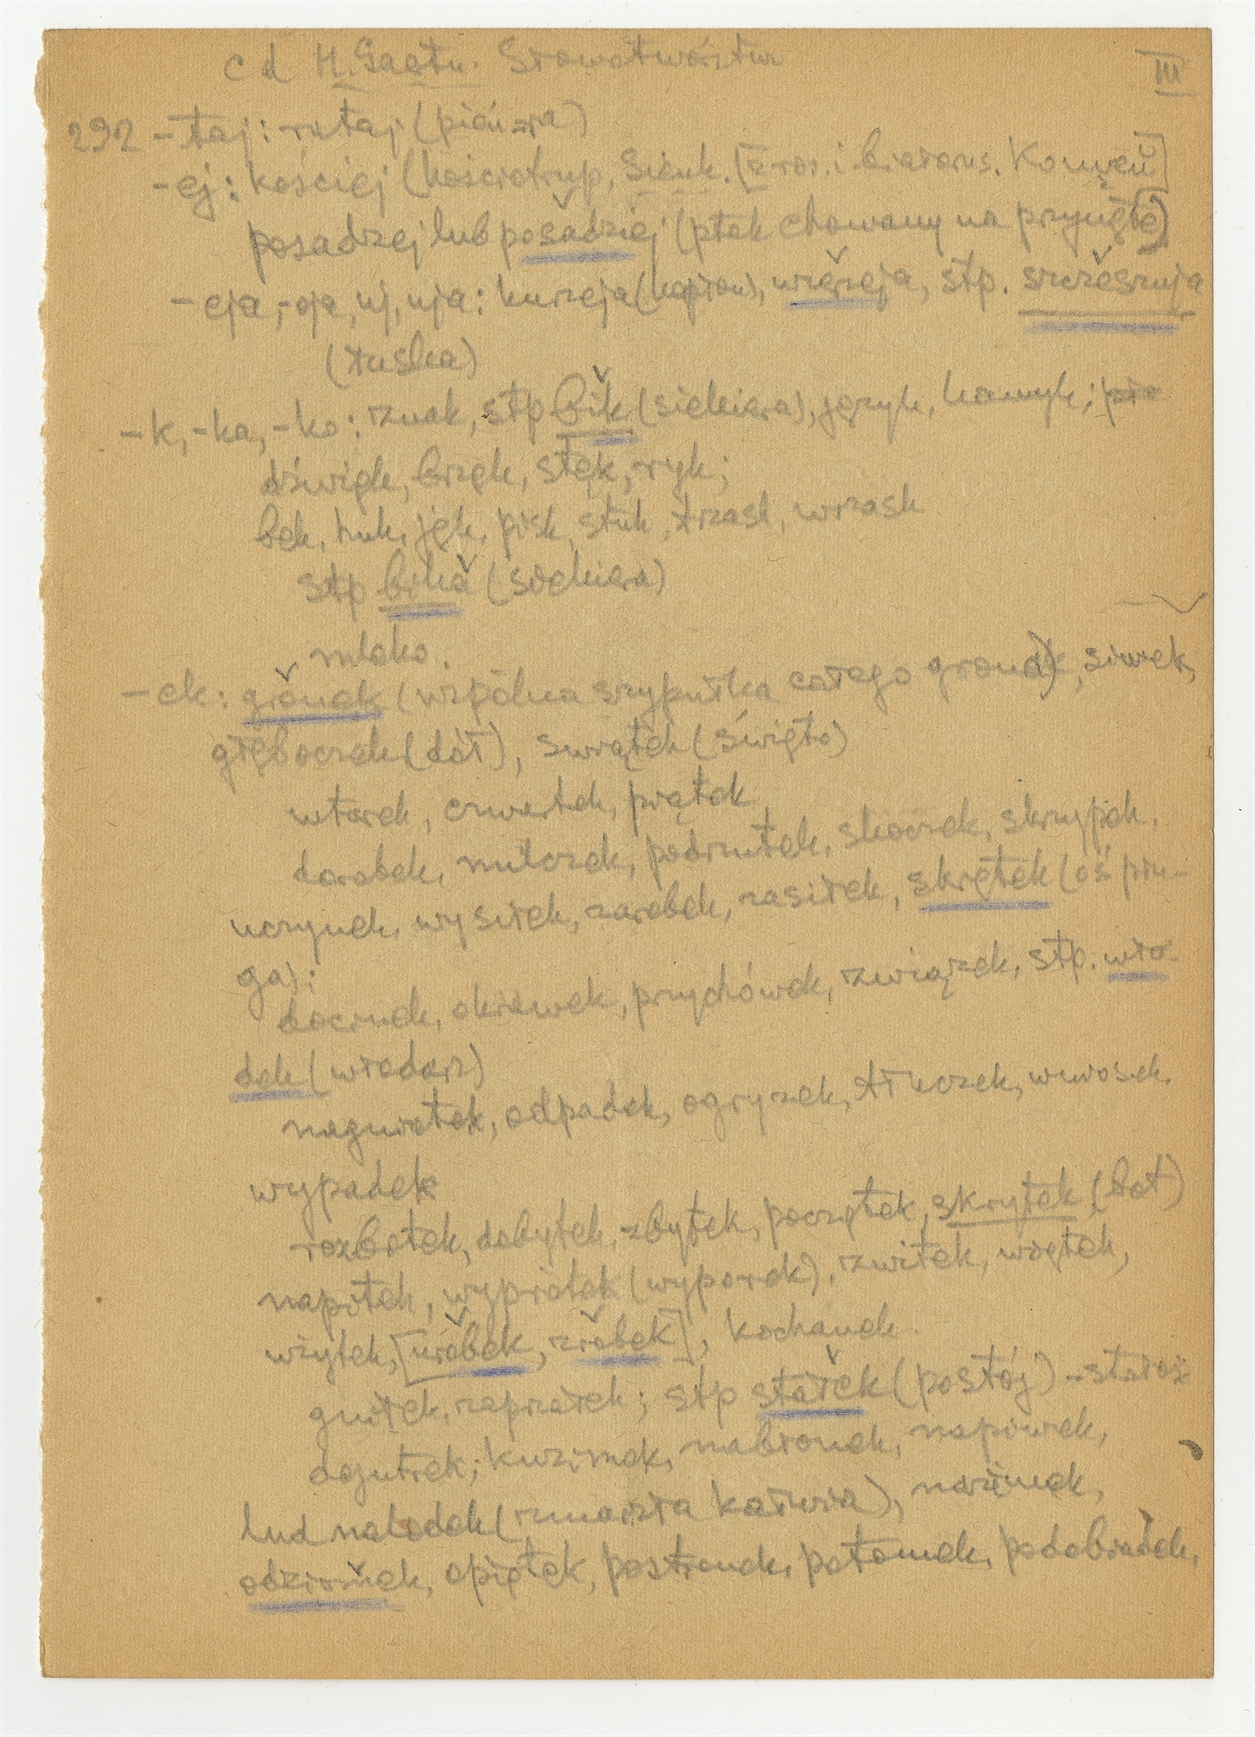 cd H. Gaertn. Słowotwórstw III
292 -taj: rataj (pieśniarz)
-ej: kościej (kościotrup, Sienk. [z ros. i białorus. Kощей]
posadzej lub posadziej (ptak chowany na przynętę)
-eja, -oja, uj, uja: kurzeja (kapłon), wierzeja, stp. szczeszuja
(łuska)
-k, -ka, -ko: znak, stp bik (siekiera), język, kamyk;
dźwięk, brzęk, stęk, ryk;
bek, huk, jęk, pisk, stuk, trzask, wrzask
stp bika (siekiera)
mleko.
-ek: gronek (wspólna szypułka całego grona), siwek,
głęboczek (dół), świątek (święto)
wtorek, czwartek, piątek,
dorobek, milczek, podrzutek, skoczek, skrzypek,
uczynek, wysiłek, zarobek, zasiłek, skrętek (oś płu-
ga);
docinek, okrawek, przychówek, związek, stp. wło-
dek (włodarz)
nagniotek, odpadek, ogryzek, tłuczek, wniosek,
wypadek
rozbitek, dobytek, zbytek, początek, skrytek (bot)
napitek, wypłotek (wyporek), zwitek, wziątek,
użytek, [urobek, zrobek], kochanek.
gniłek, zaprzałek; stp stałek (postój) -
dojutrek; kuzimek, nabronek, napiwek,
lud nalodek (zmarzła kałuża), nażimek,
odziomek, opiłek, postronek, potomek, podobradek,